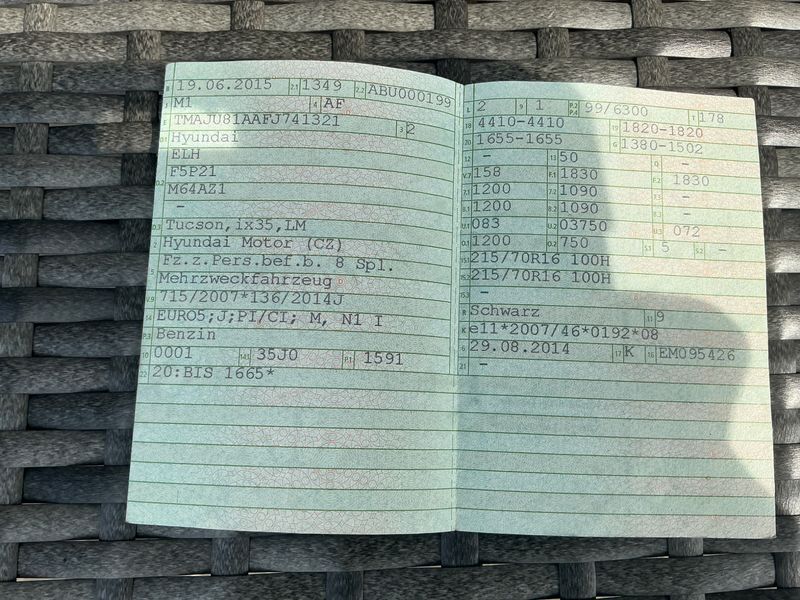 B 19.06.2015 2.1 1349 2.2 ABU000199
J M1 4 AF
E TMAJU81AAFJ741321 3 2
D.1 Hyundai
ELH
D.2 F5P21
M64AZ1
–
D.3 Tucson,ix35,LM
2 Hyundai Motor (CZ)
5 Fz.z.Pers.bef.b. 8 Spl.
Mehrzweckfahrzeug
V.9 715/2007*136/2014J
14 EURO5;J;PI/CI; M, N1 I
P.3 Benzin
10 0001 14.1 35J0 P.1 1591
22 20:BIS 1665*
L 2 9 1 P.2 P.4 99/6300 T 178
18 4410-4410 19 1820-1820
20 1655-1655 G 1380-1502
12 – 13 50 Q –
V.7 158 F.1 1830 F.2 1830
7.1 1200 7.2 1090 7.3 –
8.1 1200 8.2 1090 8.3 –
U.1 083 U.2 03750 U.3 072
O.1 1200 O.2 750 S.1 5 S.2 –
15.1 215/70R16 100H
15.2 215/70R16 100H
15.3 –
R Schwarz 11 9
K e11*2007/46*0192*08
6 29.08.2014 17 K 16 EM095426
21 –